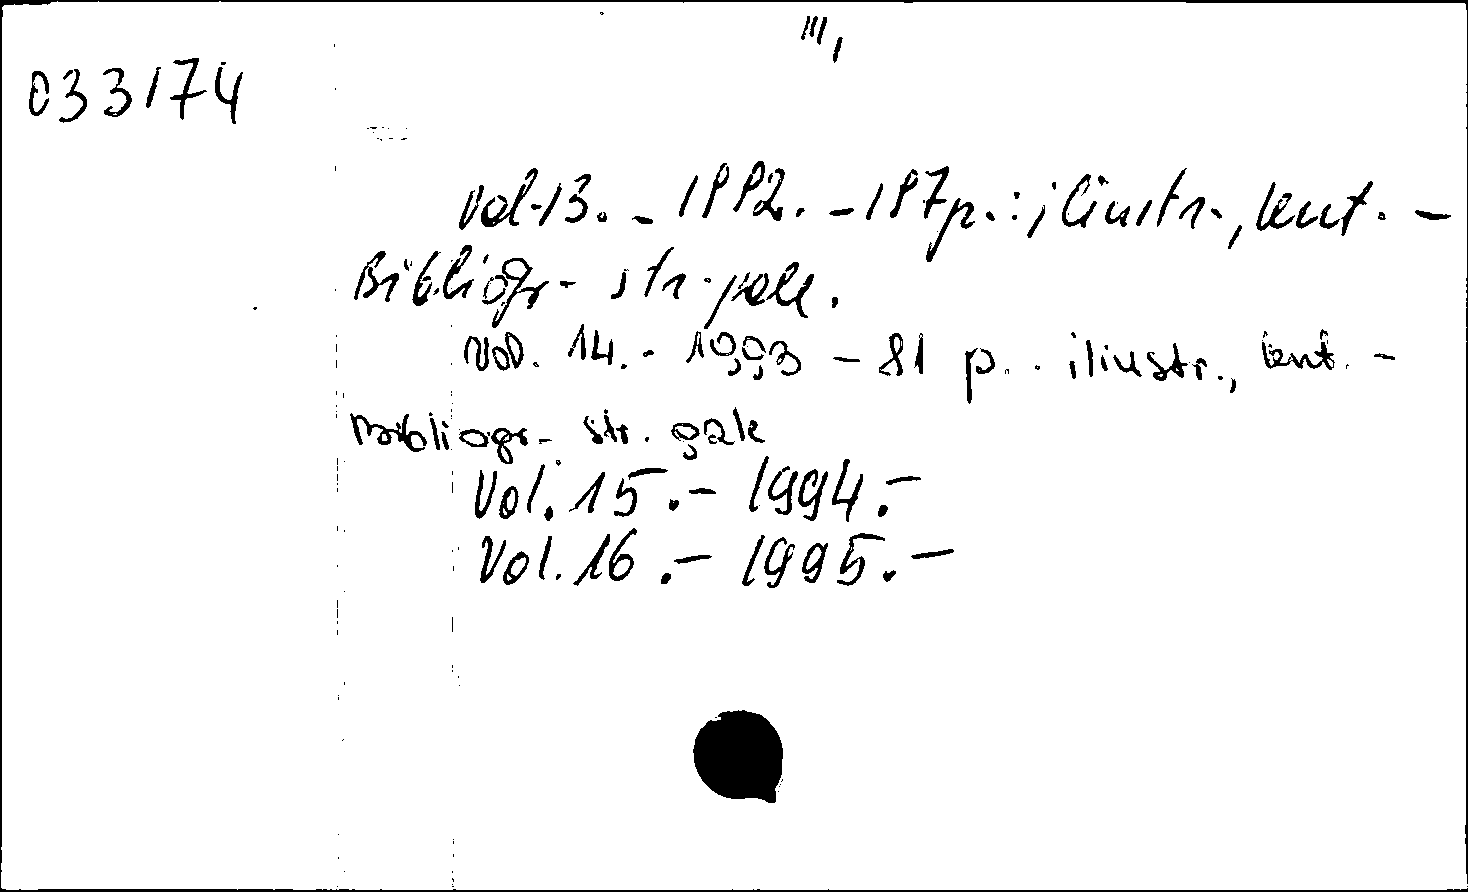 III,
033174
Vol. 13. – 1992. – 197 p. : iliustr., lent. –
Bibliogr. str. gale.
Vol. 14. – 1993 – 81 p. : iliustr., lent. –
Bibliogr. str. gale
Vol. 15. – 1994. –
Vol. 16. – 1995. –